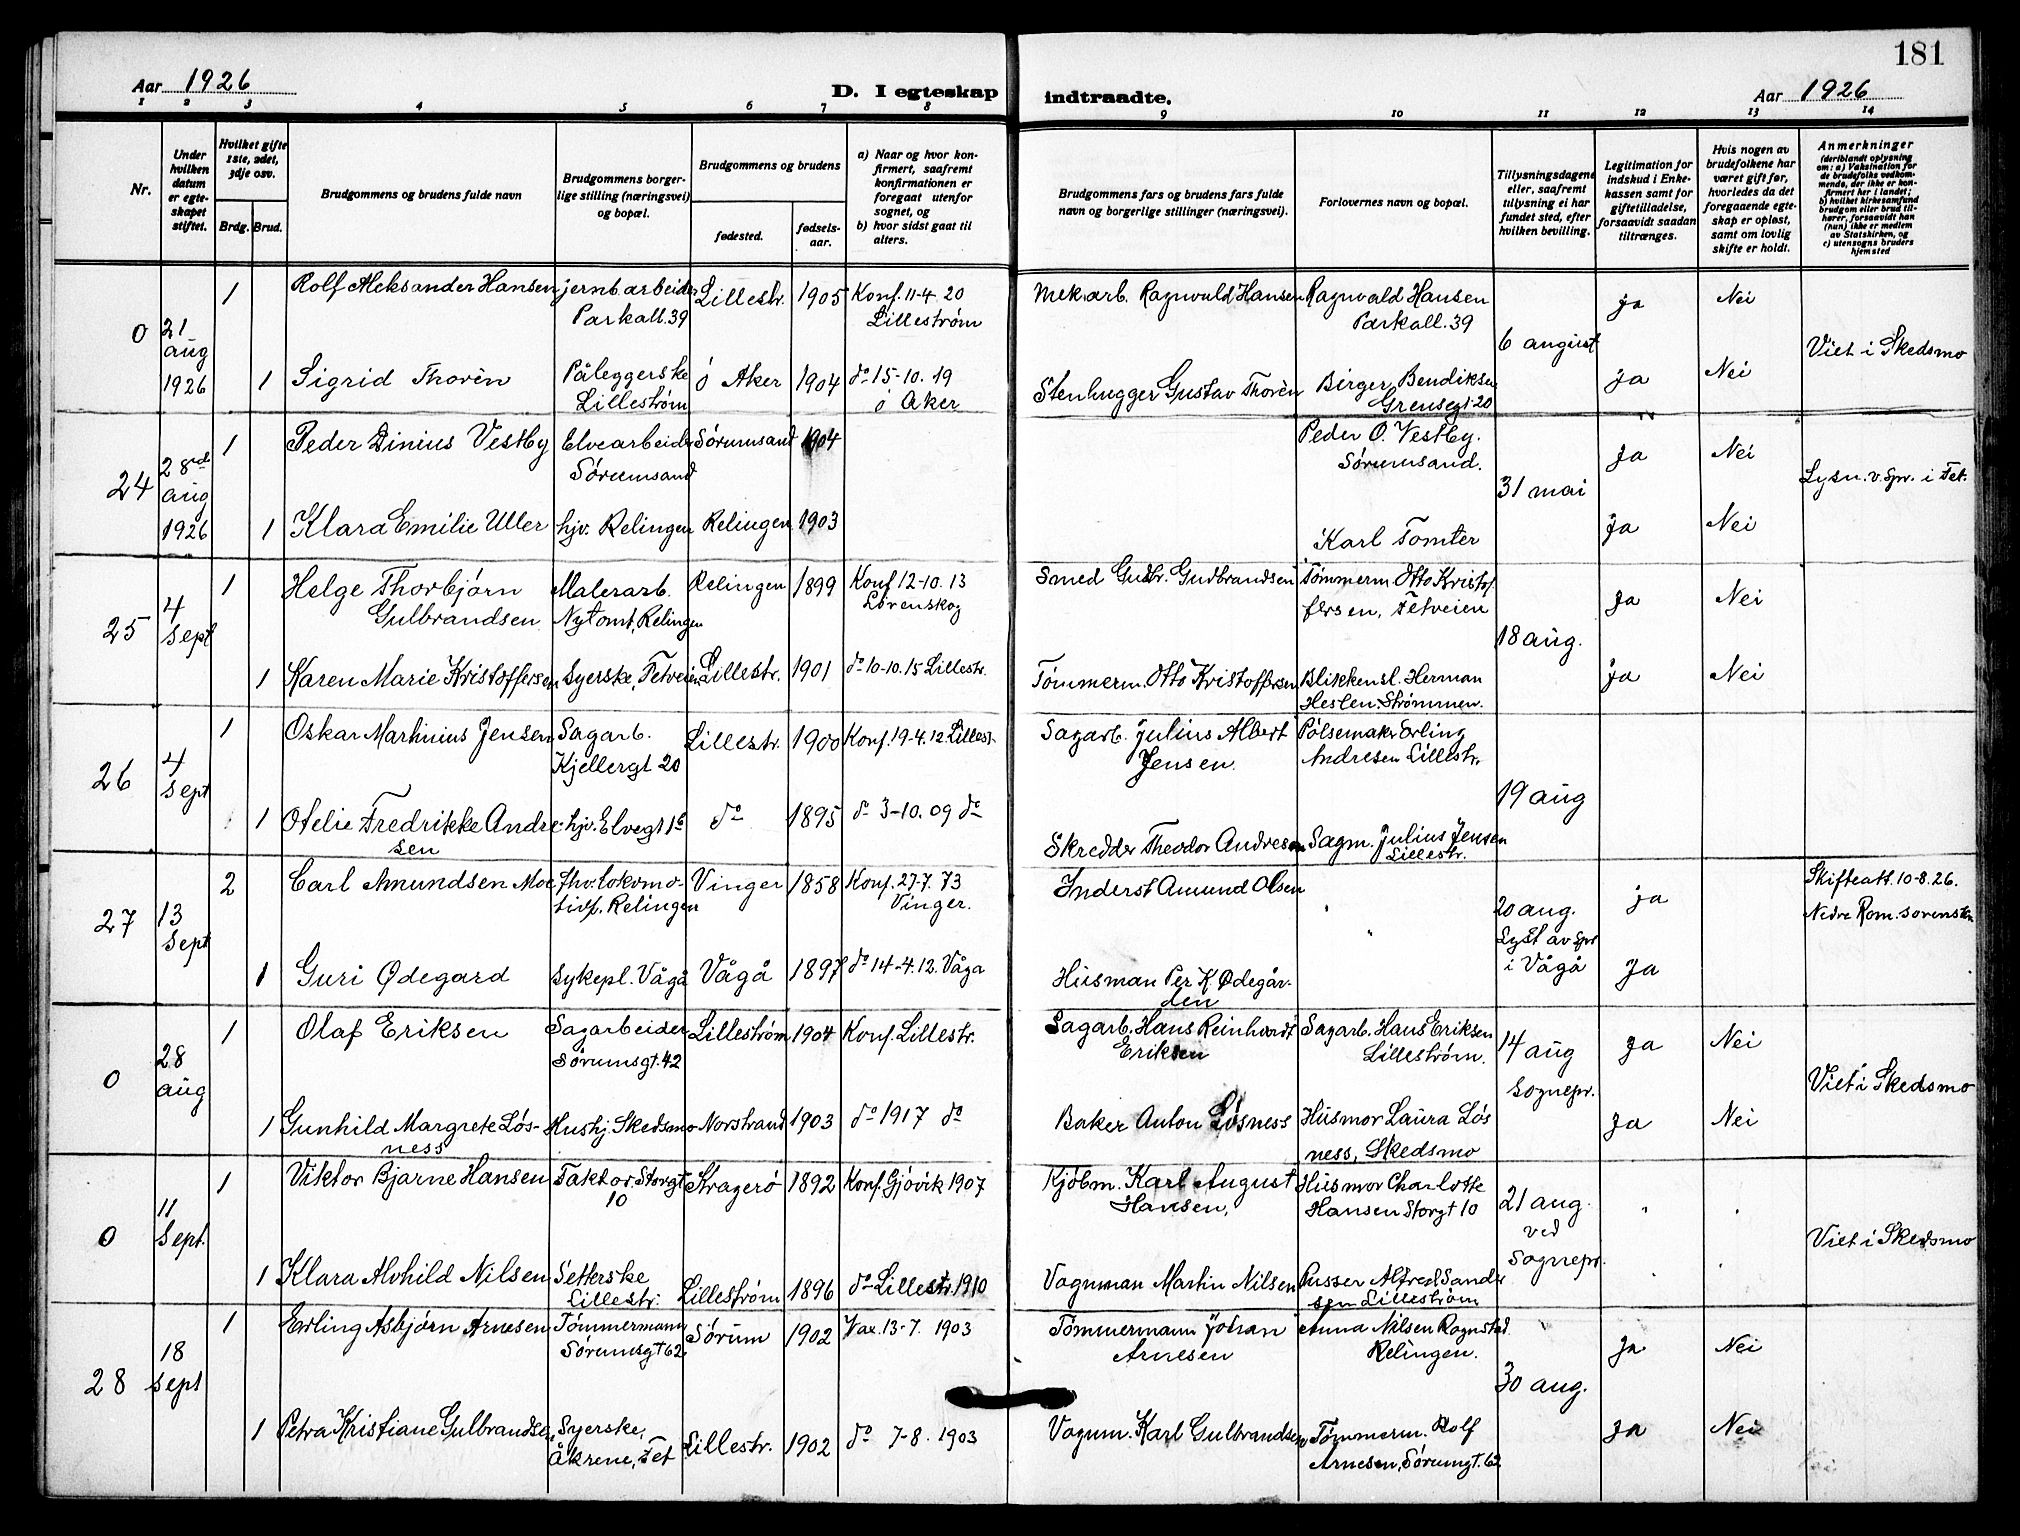 181
Aar 1926
D. I egteskap
indtraadte.
Aar 1926
1 2 3 4 5 6 7 8 9 10 11 12 13 14
Nr.
Under hvilken datum er egteskapet stiftet.
Hvilket gifte 1ste, 2det, 3dje osv.
Brdg. Brud.
Brudgommens og brudens fulde navn
Brudgommens borgerlige stilling (næringsvei) og bopæl.
Brudgommens og brudens
fødested.
fødselsaar.
a) Naar og hvor konfirmert, saafremt konfirmationen er foregaat utenfor sognet, og
b) hvor sidst gaat til alters.
Brudgommens fars og brudens fars fulde navn og borgerlige stillinger (næringsvei).
Forlovernes navn og bopæl.
Tillysningsdagene eller, saafremt tillysning ei har fundet sted, efter hvilken bevilling.
Legitimation for indskud i Enkekassen samt for giftetilladelse, forsaavidt saadan tiltrænges.
Hvis nogen av brudefolkene har været gift før, hvorledes da det foregaaende egteskap er opløst, samt om lovlig skifte er holdt.
Anmerkninger
(deriblandt oplysning om: a) Vaksination for de brudefolks vedkommende, der ikke er konfirmert her i landet; b) hvilket kirkesamfund brudgom eller brud tilhører, forsaavidt han (hun) ikke er medlem av Statskirken, og c) utensogns bruders hjemsted
0 21 aug 1926
1 Rolf Aleksander Hansen jernbarbeider Parkall. 39 Lillestr. 1905 Konf. 11-4. 20 Lillestrøm Mek.arb. Ragnvald Hansen Ragnvald Hansen Parkall. 39 6 august ja Nei Viet i Skedsmo
1 Sigrid Thorèn Påleggerske Lillestrøm ø Aker 1904 do 15-10. 19 ø Aker Stenhugger Gustav Thorèn Birger Bendiksen Grensegt. 20 ja Nei
24 28de aug 1926
1 Peder Dinius Vestby Elvearbeider Sørumsand Sørumsand 1904 Peder O. Vestby. Sørumsand. 31 mai ja Nei Lysn. v. Spr. i Fet.
1 Klara Emilie Uller hjv. Relingen Relingen 1903 Karl Tomter ja Nei
25 4 sept
1 Helge Thorbjørn Gulbrandsen Malerarb. Nytomt, Relingen Relingen 1899 Konf 12-10. 13 Lørenskog Smed Gudbr. Gudbrandsen Tømmerm. Otto Kristoffersen, Fetveien 18 aug. ja Nei
1 Karen Marie Kristoffersen Syerske, Fetveien Lillestr. 1901 do 10-10. 15 Lillestr. Tømmerm. Otto Kristoffersen Blikkensl. Herman Heslen. Strømmen. ja Nei
26 4 sept
1 Oskar Martinius Jensen Sagarb. Kjellergt 20 Lillestr. 1900 Konf. 19-4. 12. Lillest. Sagarb. Julius Albert Jensen. Pølsemaker Erling Andresen Lillestr. 19 aug
1 Otelie Fredrikke Andresen hjv. Elvegt 16 do 1895 do 3-10. 09 do Skredder Theodor Andresen Sagm. Julius Jensen Lillestr.
27 13 sept
2 Carl Amundsen Moe fhv. lokomotivf. Relingen Vinger 1858 Konf. 27-7. 73 Vinger. Inderst Amund Olsen 20 aug. Lyst av Spr i Vågå ja Skifteatt. 10-8. 26. Nedre Rom. sorenskr.
1 Guri Ødegard Sykepl. Vågå Vågå 1897 do 14-4. 12. Våga Husman Per K. Ødegården Ja
0 28 aug
1 Olaf Eriksen Sagarbeider Sørumsgt. 42 Lillestrøm 1904 Konf. Lillestr. Sagarb. Hans Reinhardt Eriksen Sagarb. Hans Eriksen Lillestrøm. 14 aug sognepr. ja Nei Viet i Skedsmo
1 Gunhild Margrete Løsness Hushj. Skedsmo Norstrand 1903 do 1917 do Baker Anton Løsness Husmor Laura Løsness, Skedsmo Ja Nei
0 11 sept.
1 Viktor Bjarne Hansen Faktor. Storgt 10 Kragerø 1892 Konf. Gjøvik 1907 Kjøbm. Karl August Hansen. Husmor Charlotte Hansen Storgt 10 21 aug. ved Sognepr. Viet i Skedsmo
1 Klara Alvhild Nilsen Setterske Lillestr. Lillestrøm 1896 do Lillestr. 1910 Vognman Martin Nilsen Pusser Alfred Sandersen Lillestrøm
28 18 sept
1 Erling Asbjørn Arnesen Tømmermann Sørumsgt 62 Sørum 1902 Vax. 13-7. 1903 Tømmermann Johan Arnesen Anna Nilsen Rognstad Relingen. 30 aug. Ja Nei
1 Petra Kristiane Gulbrandsen Syerske, Åkrene, Fet Lillestr. 1902 do 7-8. 1903 Vognm. Karl Gulbrandsen Tømmerm. Rolf Arnesen, Sørumgt. 62 Ja Nei